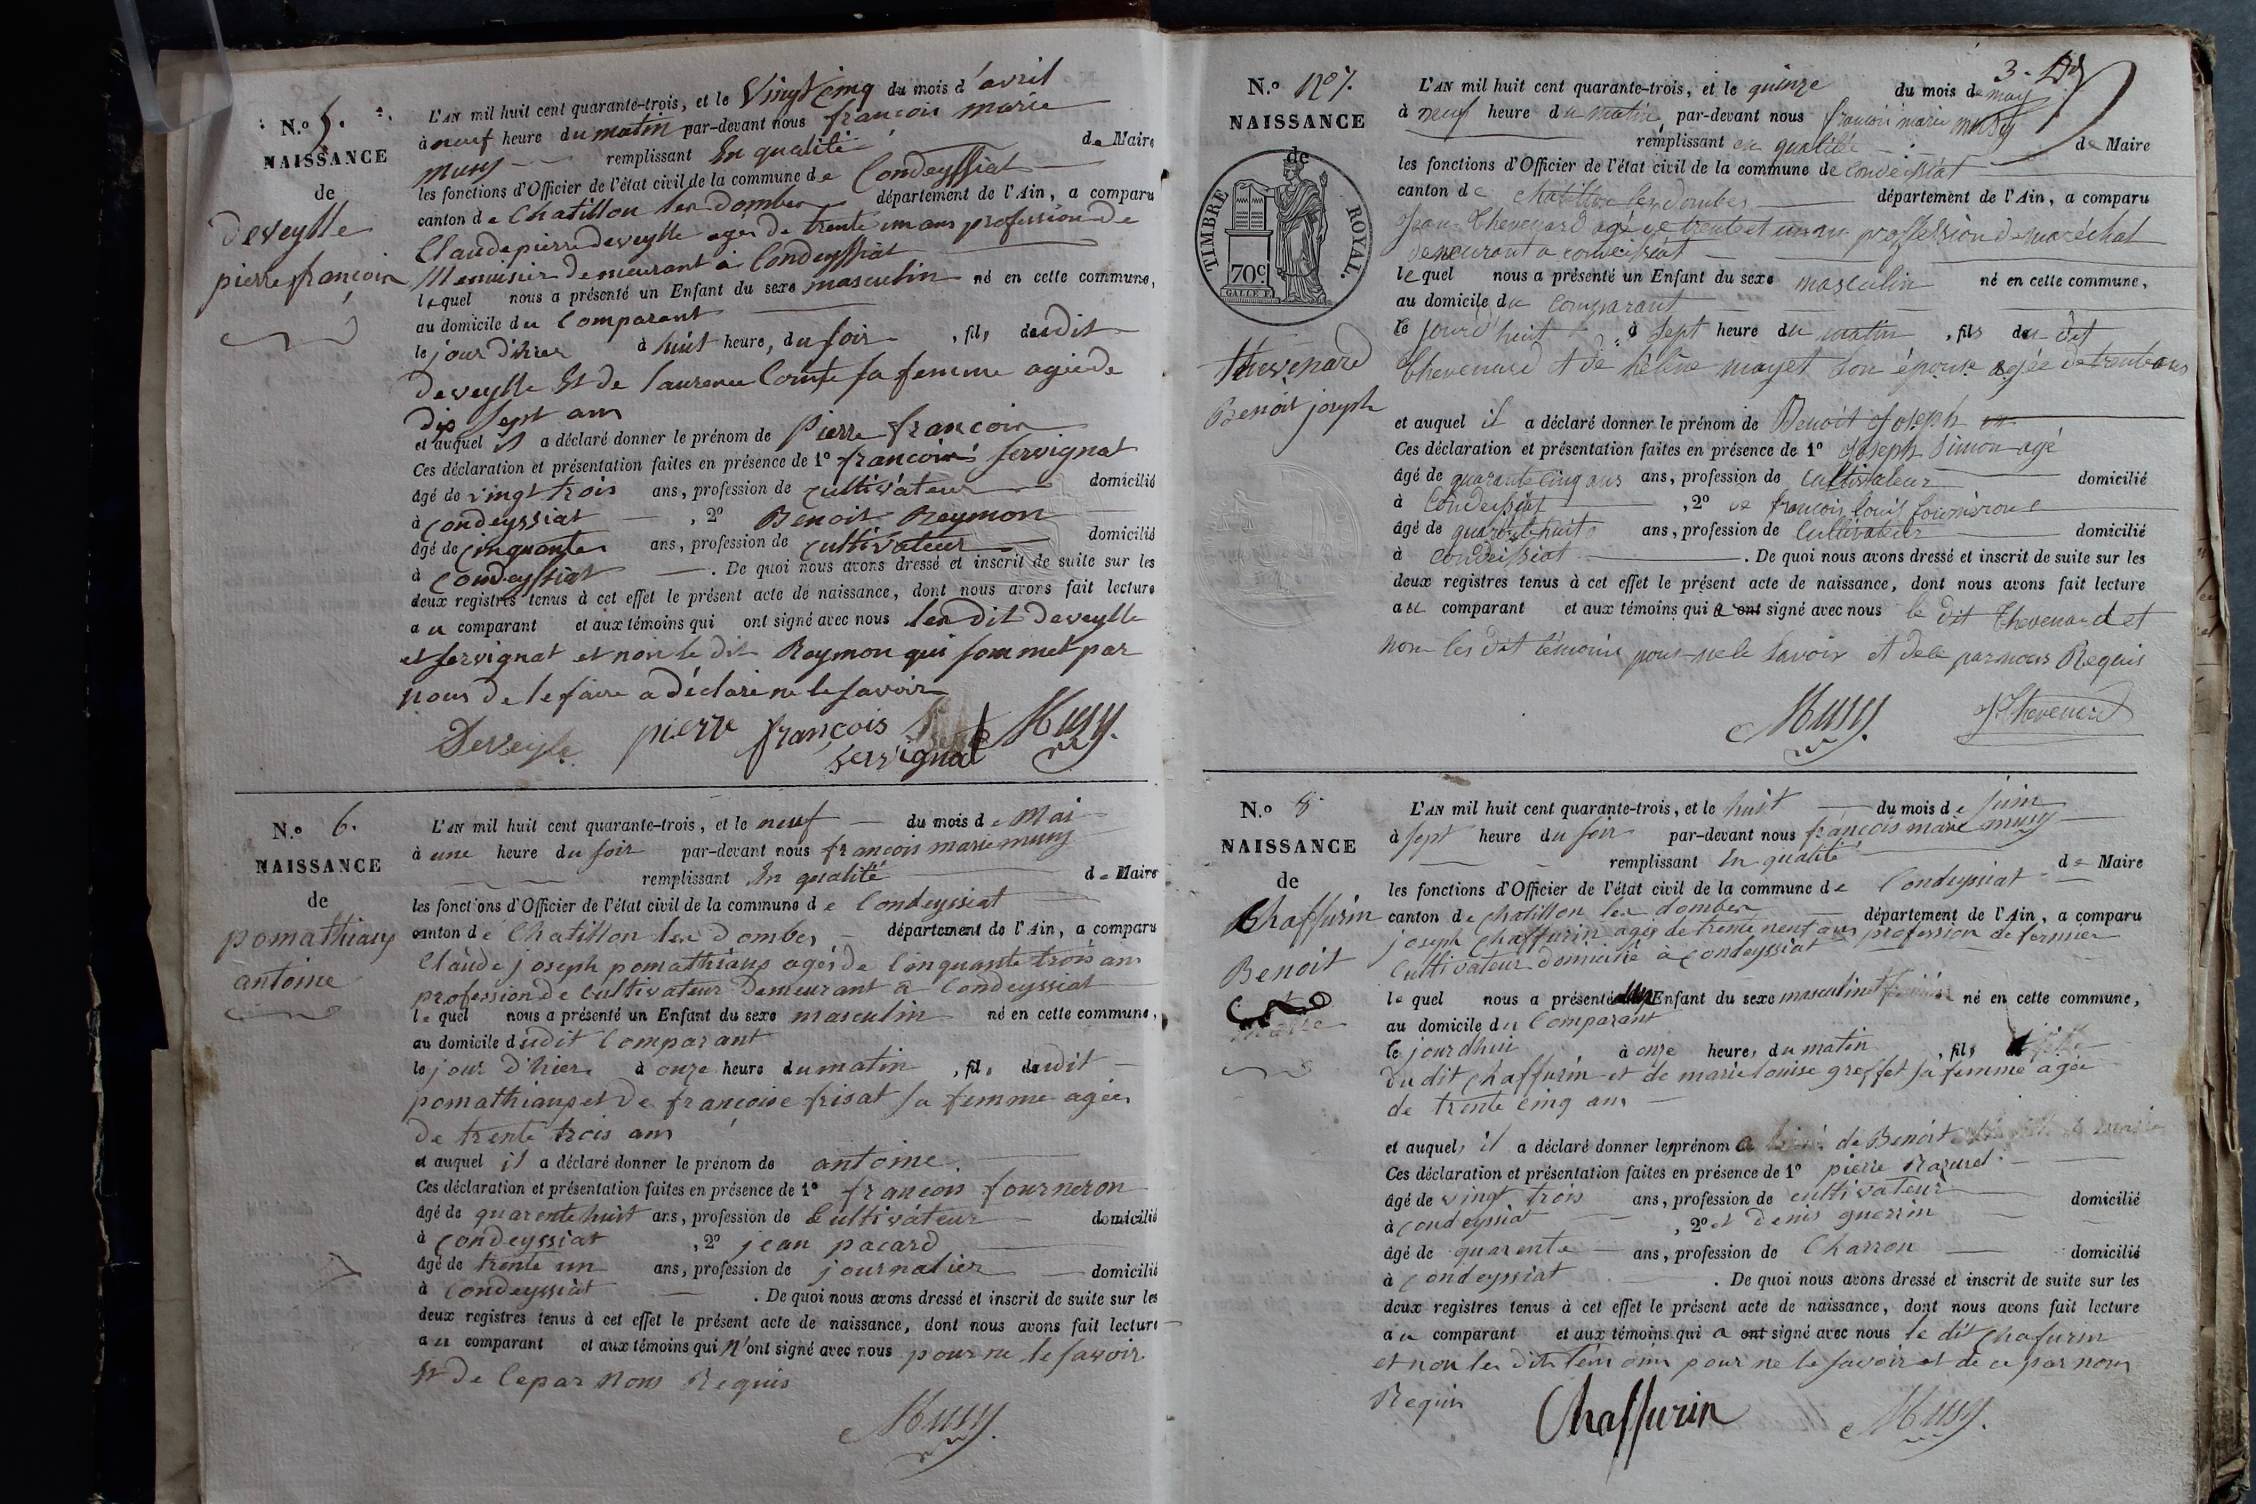 N.o 5.
NAISSANCE
de
deveylle
pierre françois
L'AN mil huit cent quarante-trois, et le Vingt Cinq du mois d'avril
à neuf heure du matin par-devant nous françois marie
musy remplissant En qualité de Maire
les fonctions d'Officier de l'état civil de la commune de Condeyssiat
canton de Chatillon les Dombes département de l'Ain, a comparu
Claude pierre deveylle agés de trente un ans profession de
Menuisier Demeurant à Condeyssiat
lequel nous a présenté un Enfant du sexe masculin né en cette commune,
au domicile du Comparant
le jour d'hier à huit heure, du soir, fils dudit
deveylle Et de laurence Comte sa femme agée de
dix sept ans
et auquel il a déclaré donner le prénom de Pierre françois
Ces déclaration et présentation faites en présence de 1º françois servignat
âgé de vingt trois ans, profession de cultivateur domicilié
à Condeyssiat, 2º Benoit Reymon
âgé de cinquante ans, profession de cultivateur domicilié
à Condeyssiat. De quoi nous avons dressé et inscrit de suite sur les
deux registres tenus à cet effet le présent acte de naissance, dont nous avons fait lecture
au comparant et aux témoins qui ont signé avec nous les Dit deveylle
et servignat et non le dit Reymon qui sommét par
nous de le faire a déclaré ne le savoir
Deveyle pierre françois servignat Musy
N.o 6.
NAISSANCE
de
pomathiaux
antoine
L'AN mil huit cent quarante-trois, et le neuf du mois de Mai
à une heure du soir par-devant nous françois marie musy
remplissant En qualité de Maire
les fonctions d'Officier de l'état civil de la commune de Condeyssiat
canton de Chatillon les Dombes département de l'Ain, a comparu
Claude joseph pomathiaux agés de Cinquante trois ans
profession de Cultivateur Demeurant a Condeyssiat
lequel nous a présenté un Enfant du sexe masculin né en cette commune,
au domicile dudit Comparant
le jour d'hier à onze heure du matin, fils dudit
pomathiaux et De françoise frisat sa femme agée
De trente trois ans
et auquel il a déclaré donner le prénom de antoine.
Ces déclaration et présentation faites en présence de 1º françois fourneron
âgé de quarente huit ans, profession de Cultivateur domicilié
à Condeyssiat, 2º jean pacard
âgé de trente un ans, profession de journalier domicilié
à Condeyssiat. De quoi nous avons dressé et inscrit de suite sur les
deux registres tenus à cet effet le présent acte de naissance, dont nous avons fait lecture
au comparant et aux témoins qui n'ont signé avec nous pour ne le savoir
Et De Ce par Nous Requis
Musy.
3.
N.o nº 7.
NAISSANCE
de
TIMBRE ROYAL.
70c
GALLET
thevenard
Benoit joseph
L'AN mil huit cent quarante-trois, et le quinze du mois de may
à neuf heure du matin, par-devant nous françois marie musy
remplissant en qualité de Maire
les fonctions d'Officier de l'état civil de la commune de Condeissiat
canton de chatillon les dombes département de l'Ain, a comparu
Jean Thevenard agé de trente et un an proffession de maréchal
demeurant a condeissiat
lequel nous a présenté un Enfant du sexe masculin né en cette commune,
au domicile du comparant
le jourd'huit à sept heure du matin, fils du dit
Thevenard et de hélène mayet son épouse agée de trente ans
et auquel il a déclaré donner le prénom de Benoit Joseph
Ces déclaration et présentation faites en présence de 1º Joseph Simon agé
âgé de quarante cinq ans ans, profession de Cultivateur domicilié
à Condeissiat, 2º françois louis
âgé de quarante huit ans, profession de Cultivateur domicilié
à Condeissiat. De quoi nous avons dressé et inscrit de suite sur les
deux registres tenus à cet effet le présent acte de naissance, dont nous avons fait lecture
au comparant et aux témoins qui a ont signé avec nous le dit Thevenard et
non les dit témoins pour ne le Savoir et de ce par nous Requis
Musy. J Thevenard
N.o 8
NAISSANCE
de
Chaffurin
Benoit
L'AN mil huit cent quarante-trois, et le huit du mois de juin
à sept heure du soir par-devant nous françois marie musy
remplissant En qualité de Maire
les fonctions d'Officier de l'état civil de la commune de Condeyssiat
canton de chatillon les dombes département de l'Ain, a comparu
joseph Chaffurin agés de trente neuf ans profession de fermier
Cultivateur domicilié à Condeyssiat
lequel nous a présenté Enfant du sexe masculin et né en cette commune,
au domicile du Comparant
le jourdhui à onze heures du matin, fils
du dit Chaffurin et de marie louise greffet sa femme agée
de trente cinq ans
et auquel il a déclaré donner les prénom de Benoit
Ces déclaration et présentation faites en présence de 1º pierre Razurel
âgé de vingt trois ans, profession de cultivateur domicilié
à Condeyssiat, 2º et Denis guerrin
âgé de quarente ans, profession de Charron domicilié
à Condeyssiat. De quoi nous avons dressé et inscrit de suite sur les
deux registres tenus à cet effet le présent acte de naissance, dont nous avons fait lecture
au comparant et aux témoins qui a ont signé avec nous le dit Chafurin
et non les dits témoins pour ne le savoir et de ce par nous
Requis
Chaffurin Musy.